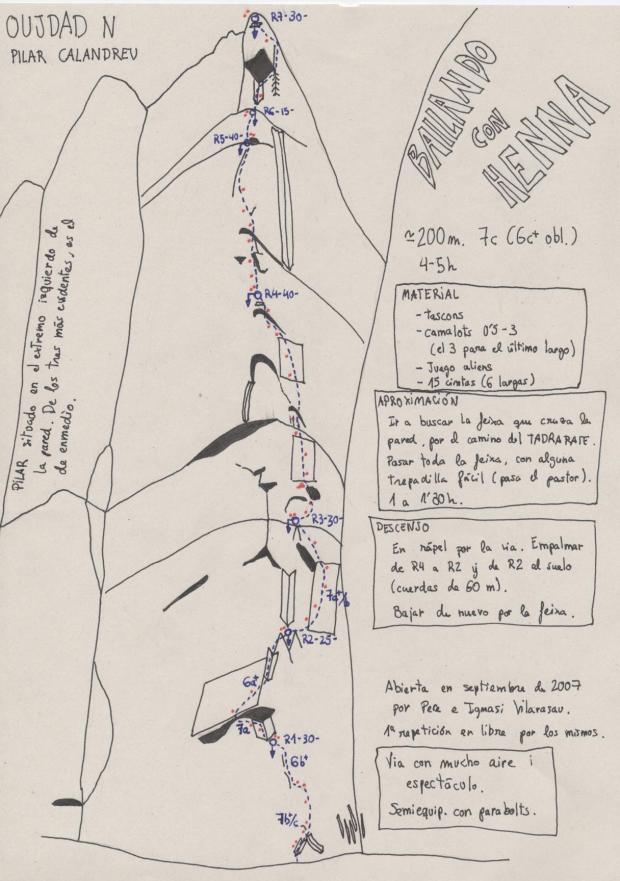 OUJDAD N
PILAR CALANDREU
BAILANDO
CON
HENNA
≃200m. 7c (6c+ obl.)
4-5h
MATERIAL
- tascons
- camalots 0'5-3
(el 3 para el último largo)
- Juego aliens
- 15 cintas (6 largas)
APROXIMACIÓN
Ir a buscar la feixa que cruza la
pared, por el camino del TADRARATE.
Pasar toda la feixa, con alguna
trepadilla fácil (pasa el pastor).
1 a 1'30h.
DESCENSO
En rápel por la via. Empalmar
de R4 a R2 y de R2 al suelo
(cuerdas de 60 m).
Bajar de nuevo por la feixa.
Abierta en septiembre de 2007
por Pere e Ignasi Vilarasau.
1ª repetición en libre por los mismos.
Via con mucho aire i
espectáculo.
Semiequip. con parabolts.
PILAR situado en el extremo izquierdo de
la pared. De los tres más evidentes, es el
de enmedio.
R7-30-
R6-15-
R5-40-
R4-40-
R3-30-
7a+/b
R2-25-
6a+
7a
R1-30-
6b+
7b+/c